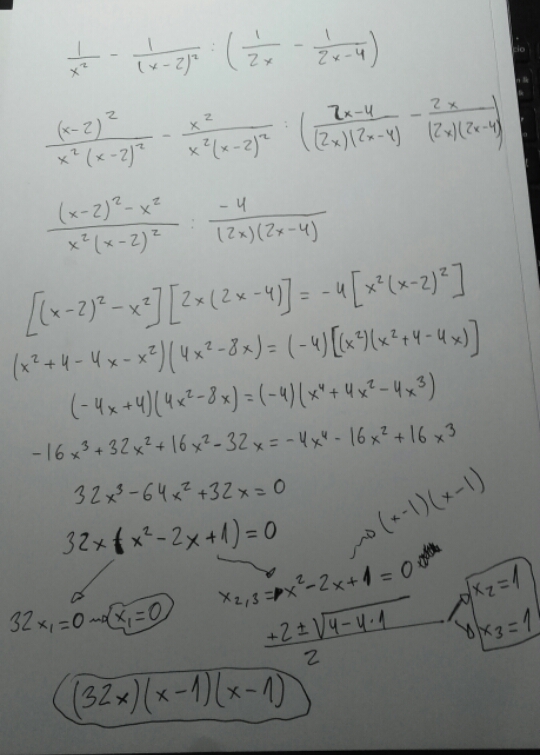 1/x² - 1/(x-2)² : (1/2x - 1/2x-4)
(x-2)²/x²(x-2)² - x²/x²(x-2)² : (2x-4/(2x)(2x-4) - 2x/(2x)(2x-4))
(x-2)²-x²/x²(x-2)² : -4/(2x)(2x-4)
[(x-2)²-x²][2x(2x-4)] = -4[x²(x-2)²]
(x²+4-4x-x²)(4x²-8x) = (-4)[(x²)(x²+4-4x)]
(-4x+4)(4x²-8x) = (-4)(x⁴+4x²-4x³)
-16x³+32x²+16x²-32x = -4x⁴-16x²+16x³
32x³-64x²+32x=0
32x(x²-2x+1)=0
(x-1)(x-1)
x₂,₃= x²-2x+1=0
32x₁=0 x₁=0
+2±√4-4·1/2
x₂=1
x₃=1
(32x)(x-1)(x-1)